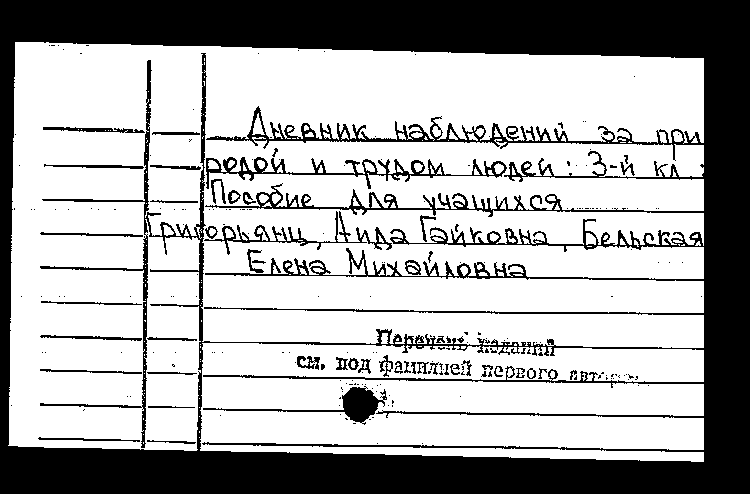 Дневник наблюдений за при
родой и трудом людей: 3-й кл.:
Пособие для учащихся
Григорьянц, Аида Гайковна, Бельская
Елена Михайловна
Перечень изданий
см. под фамилией первого автора